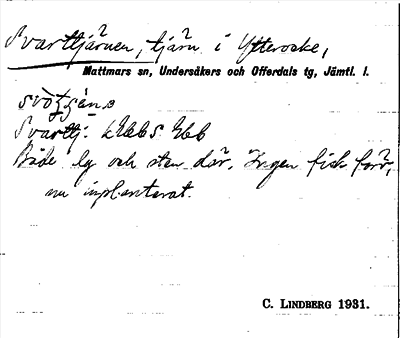 Svarttjärnen, tjärn i Ytterocke,
Mattmars sn, Undersåkers och Offerdals tg, Jämtl. l.
Svarttj.
Både ly och sten där. Ingen fisk förr,
nu inplanterat.
C. LINDBERG 1931.